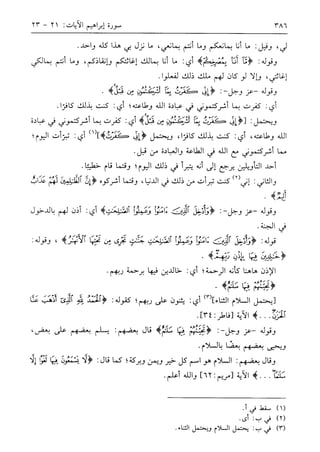 ٣٨٦ سورة إبراهيم الآيات: ٢١ - ٢٣
لي، وقيل: ما أنا بمانعكم وما أنتم بمانعي، ما نزل بي هذا كله واحد.
وقوله: ﴿مَّا أَنَا۠ بِمُصْرِخِكُمْ﴾ أي: ما أنا بمالك إغاثتكم وإنقاذكم، وما أنتم بمالكي
إغاثتي، وإلا لو كان لهم ملك ذلك لفعلوا.
وقوله -عز وجل-: ﴿إِنِّي كَفَرْتُ بِمَآ أَشْرَكْتُمُونِ مِن قَبْلُ﴾.
أي: كفرت بما أشركتموني في عبادة الله وطاعته؛ أي: كنت بذلك كافرًا.
ويحتمل: [﴿إِنِّي كَفَرْتُ بِمَآ أَشْرَكْتُمُونِ مِن قَبْلُ﴾ أي: كفرت بما أشركتموني في عبادة
الله وطاعته، أي: كنت بذلك كافرًا، ويحتمل ﴿إِنِّي كَفَرْتُ﴾](١) أي: تبرأت اليوم؛
مما أشركتموني مع الله في الطاعة والعبادة من قبل.
أحد التأويلين يرجع إلى أنه يتبرأ في ذلك اليوم؛ وقتما قام خطيبًا.
والثاني: إني(٢) كنت تبرأت من ذلك في الدنيا، وقتما أشركوه ﴿إِنَّ الظَّالِمِينَ لَهُمْ عَذَابٌ
أَلِيمٌ﴾.
وقوله -عز وجل-: ﴿وَأُدْخِلَ الَّذِينَ ءَامَنُوا وَعَمِلُوا الصَّالِحَاتِ﴾ أي: أذن لهم بالدخول
في الجنة.
قوله: ﴿وَأُدْخِلَ الَّذِينَ ءَامَنُوا وَعَمِلُوا الصَّالِحَاتِ جَنَّاتٍ تَجْرِي مِن تَحْتِهَا الْأَنْهَارُ﴾، وقوله:
﴿خَالِدِينَ فِيهَا بِإِذْنِ رَبِّهِمْ﴾.
الإذن هاهنا كأنه الرحمة؛ أي: خالدين فيها برحمة ربهم.
﴿تَحِيَّتُهُمْ فِيهَا سَلَامٌ﴾.
[يحتمل السلام الثناء](٣) أي: يثنون على ربهم؛ كقوله: ﴿الْحَمْدُ لِلَّهِ الَّذِي أَذْهَبَ عَنَّا
الْحَزَنَ...﴾ الآية [فاطر: ٣٤].
وقوله -عز وجل-: ﴿تَحِيَّتُهُمْ فِيهَا سَلَامٌ﴾ قال بعضهم: يسلم بعضهم على بعض،
ويحيى بعضهم بعضًا بالسلام.
وقال بعضهم: السلام هو اسم كل خير ويمن وبركة؛ كما قال: ﴿لَّا يَسْمَعُونَ فِيهَا لَغْوًا إِلَّا
سَلَامًا...﴾ الآية [مريم: ٦٢] والله أعلم.
(١) سقط في أ.
(٢) في ب: أى.
(٣) في ب: يحتمل السلام ويحتمل الثناء.